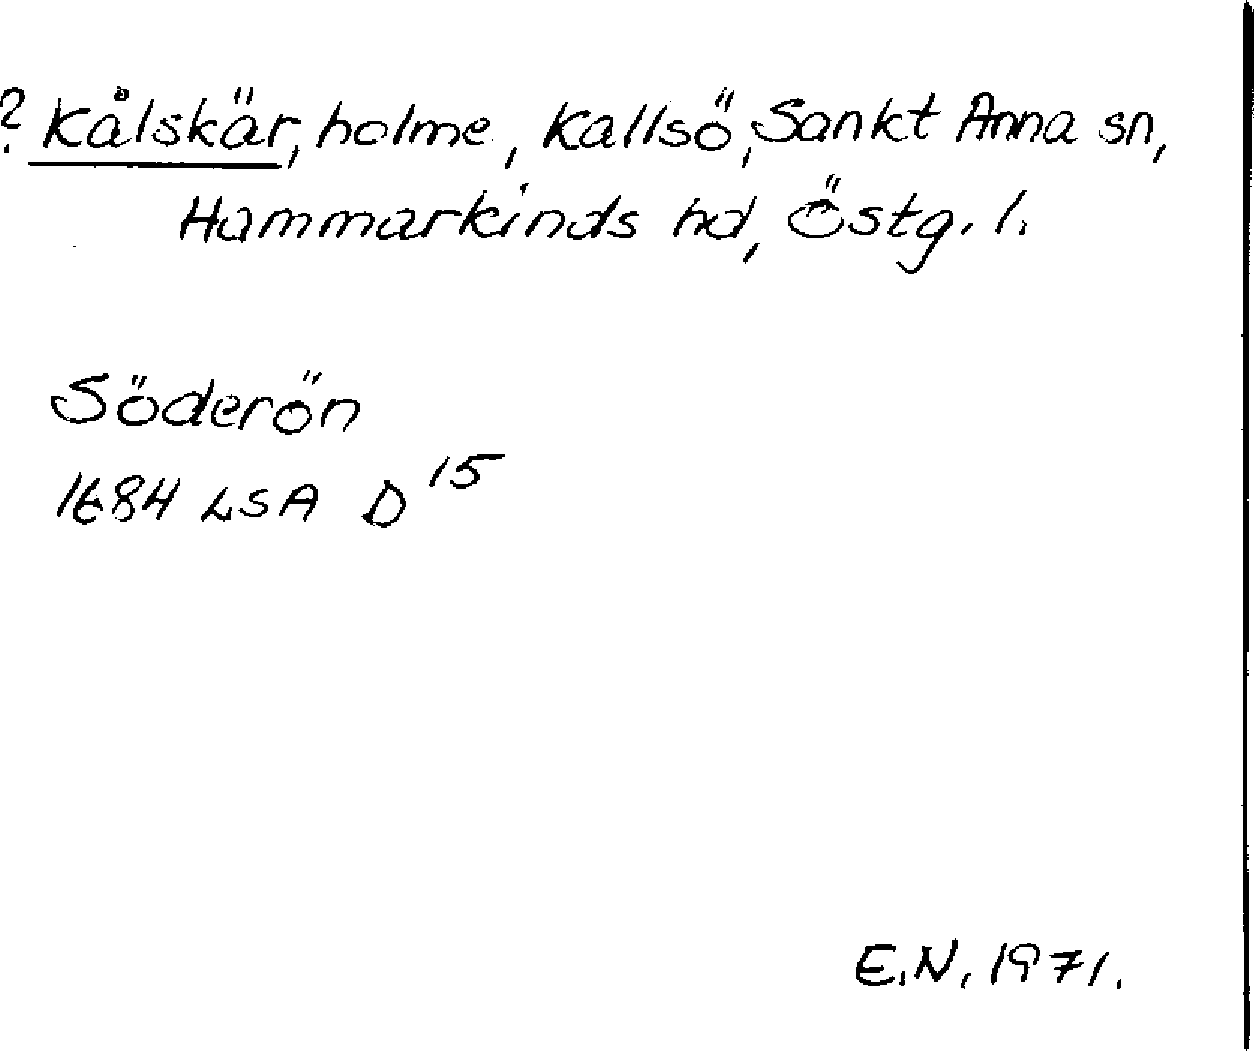 ? Kålskär, holme, Kallsö, Sankt Anna sn,
Hammarkinds hd, Östg. l.
Söderön
1684 LSA D 15
E.N. 1971.